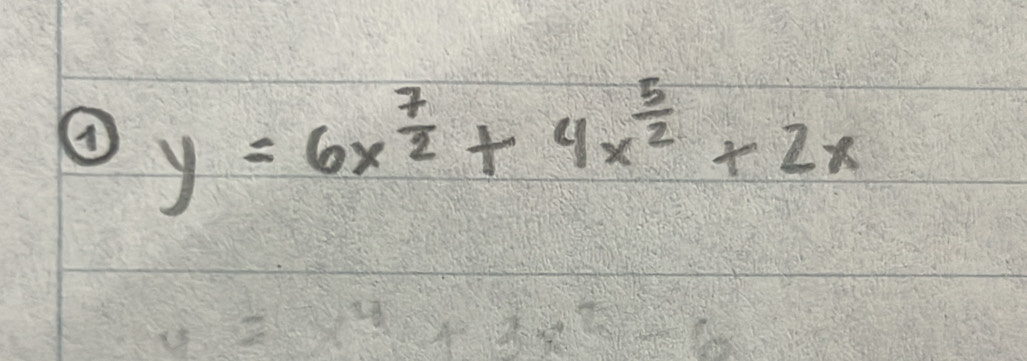 ① y = 6x^{7/2} + 4x^{5/2} + 2x